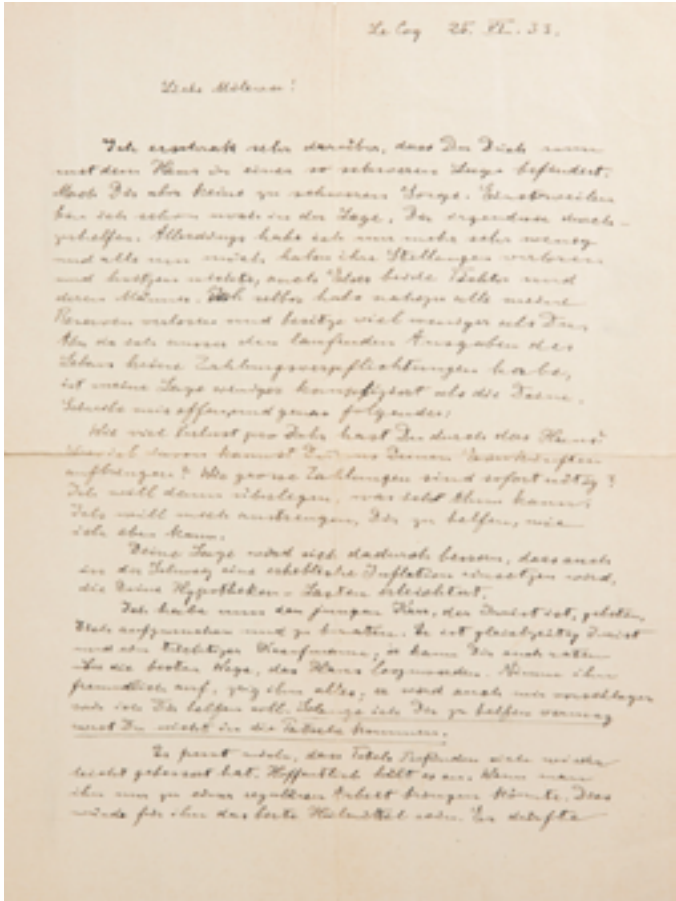 Le Coq 25. VI. 33.
Liebe Mileva!
Ich erschrak sehr darüber, dass Du Dich nun
mit dem Haus in einer so schweren Lage befindest.
Mach Dir aber keine zu schweren Sorge. Einstweilen
bin ich schon noch in der Lage, Dir irgendwie durch-
zuhelfen. Allerdings habe ich nur mehr sehr wenig
und alle um mich haben ihre Stellungen verloren
und besitzen nichts, auch beide Töchter und
deren Männer. Ich selber habe nahezu alle meine
Reserven verloren und besitze viel weniger als Du.
Aber da ich ausser den laufenden Ausgaben des
Lebens keine Zahlungsverpflichtungen habe,
ist meine Lage weniger kompliziert als die Deine.
Schreibe mir offen und genau folgendes:
Wie viel Verlust pro Jahr hast Du durch das Haus?
Wieviel davon kannst Du aus Deinen Einkünften
aufbringen? Wie grosse Zahlungen sind sofort nötig?
Ich will dann überlegen, was ich thun kann.
Ich will mich anstrengen, Dir zu helfen, wie
ich eben kann.
Deine Lage wird sich dadurch bessern, dass auch
in der Schweiz eine erhebliche Inflation einsetzen wird,
die Deine Hypotheken-Lasten erleichtert.
Ich habe nun den jungen, der Jurist ist, gebeten,
Dich aufzusuchen und zu beraten. Er ist gleichzeitig Jurist
und ein tüchtiger Kaufmann; er kann Dir auch raten
über die besten Wege, das Haus loszuwerden. Nimm ihn
freundlich auf, zeig ihm alles; er wird auch mir vorschlagen
wie ich Dir helfen soll. Solange ich Dir zu helfen vermag
wirst Du nicht in die Patsche kommen.
Es freut mich, dass Tetels Befinden sich wieder
leicht gebessert hat. Hoffentlich hält es an. Wenn man
ihn nur zu einer regulären Arbeit bringen könnte. Dies
würde für ihn das beste Heilmittel sein. Er dürfte